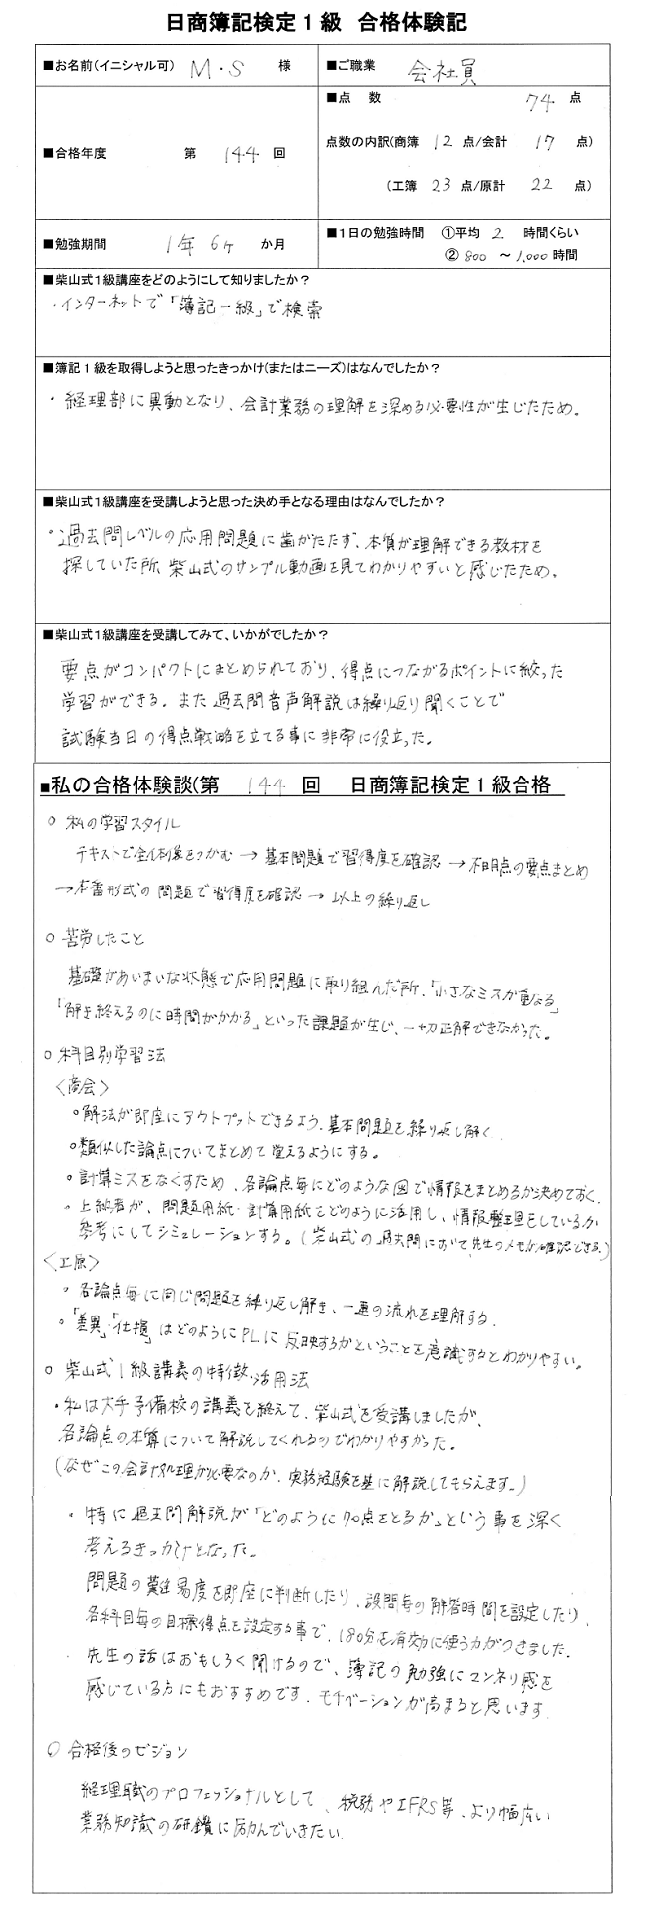 日商簿記検定1級 合格体験記
■お名前(イニシャル可) M・S 様
■ご職業 会社員
■合格年度 第 144 回
■点 数 74 点
点数の内訳(商簿 12 点/会計 17 点)
(工簿 23 点/原計 22 点)
■勉強期間 1年 6ヶ か月
■1日の勉強時間 ①平均 2 時間くらい
② 800 ~ 1,000 時間
■柴山式1級講座をどのようにして知りましたか?
・インターネットで「簿記一級」で検索
■簿記1級を取得しようと思ったきっかけ(またはニーズ)はなんでしたか?
・経理部に異動となり、会計業務の理解を深める必要性が生じたため。
■柴山式1級講座を受講しようと思った決め手となる理由はなんでしたか?
・過去問レベルの応用問題に歯がたたず、本質が理解できる教材を
探していた所、柴山式のサンプル動画を見てわかりやすいと感じたため。
■柴山式1級講座を受講してみて、いかがでしたか?
要点がコンパクトにまとめられており、得点につながるポイントに絞った
学習ができる。また過去問音声解説は繰り返り聞くことで
試験当日の得点戦略を立てる事に非常に役立った。
■私の合格体験談(第 144 回 日商簿記検定1級合格
○ 私の学習スタイル
テキストで全体像をつかむ → 基本問題で習得度を確認 → 不明点の要点まとめ
→ 本番形式の問題で習得度を確認 → 以上の繰り返し
○ 苦労したこと
基礎があいまいな状態で応用問題に取り組んだ所、「小さなミスが重なる」
「解き終えるのに時間がかかる」といった課題が生じ、一切正解できなかった。
○ 科目別学習法
〈商会〉
・解法が即座にアウトプットできるよう、基本問題を繰り返し解く
・類似した論点についてまとめて覚えるようにする。
・計算ミスをなくすため、各論点毎にどのような図で情報をまとめるか決めておく。
・上級者が、問題用紙・計算用紙をどのように活用し、情報整理をしているか
参考にしてシミュレーションする。(柴山式の過去問において先生のメモが確認できる。)
〈工原〉
・各論点毎に同じ問題を繰り返し解き、一連の流れを理解する。
・「差異」「仕損」はどのようにPLに反映するかということを意識するとわかりやすい。
○ 柴山式1級講義の特徴、活用法
・私は大手予備校の講義を終えて、柴山式を受講しましたが、
各論点の本質について解説してくれるのでわかりやすかった。
(なぜこの会計処理が必要なのか、実務経験を基に解説してもらえます。)
・特に過去問解説が「どのように70点をとるか」という事を深く
考えるきっかけとなった。
問題の難易度を即座に判断したり、設問毎の解答時間を設定したり、
各科目毎の目標得点を設定する事で、180分を有効に使う力がつきました。
・先生の話はおもしろく聞けるので、簿記の勉強にマンネリ感を
感じている方にもおすすめです。モチベーションが高まると思います。
○ 合格後のビジョン
経理職のプロフェッショナルとして、税務やIFRS等、より幅広い
業務知識の研鑽に励んでいきたい。